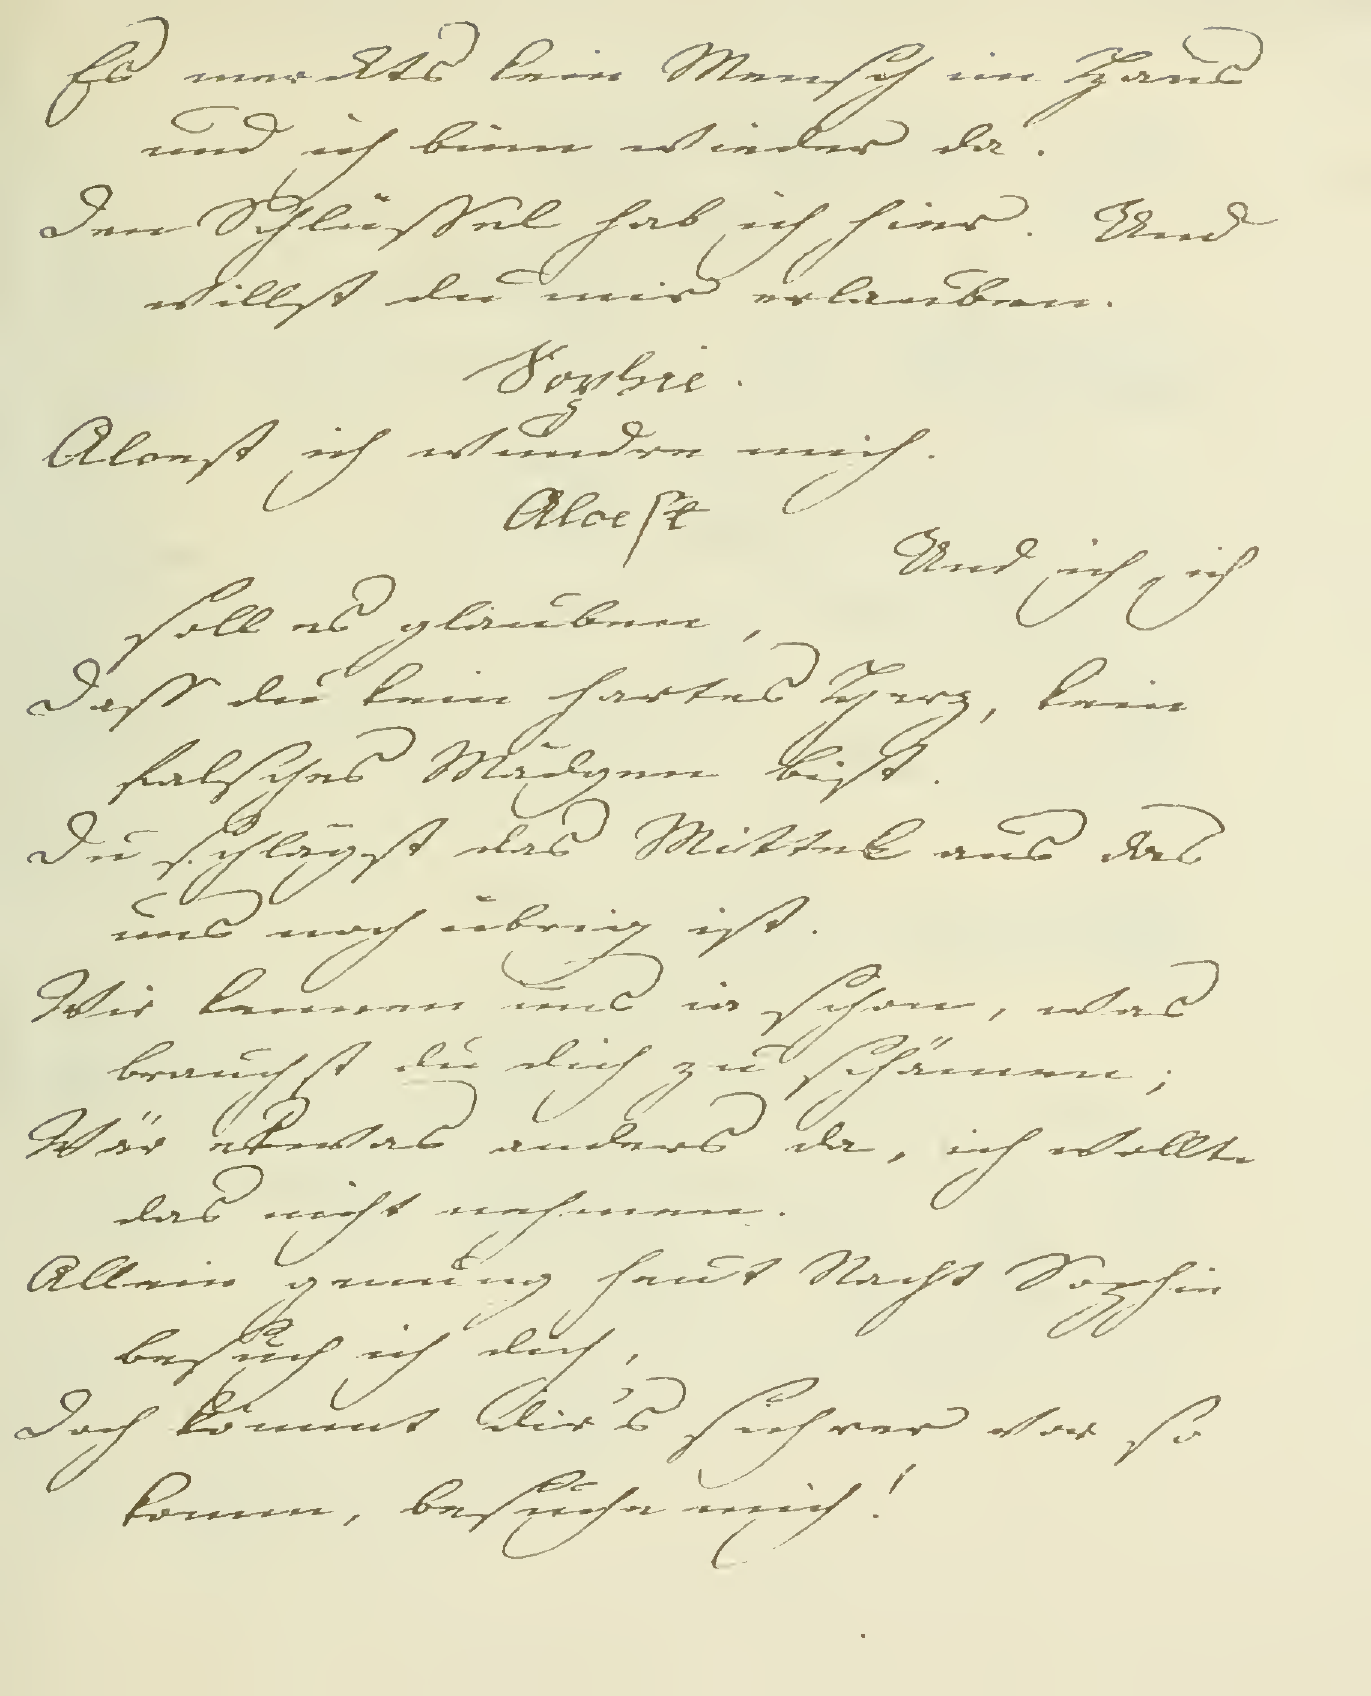 Es merckts kein Mensch im Haus
und ich binn wieder da.
Den Schlüssel hab ich hier. Und
willst du mir erlauben.
Sophie.
Alcest ich wundre mich.
Alcest
Und ich, ich
soll es glauben,
Dass du kein hartes Herz, kein
falsches Mädgen bist.
Du schlägst das Mittel aus das
uns noch übrig ist.
Wir kennen uns ia schon, was
brauchst du dich zu schämen;
Wär etwas anders da, ich wollte
das nicht nehmen.
Allein genung heut Nacht Sophie
besuch ich dich,
Doch kommt dir's sichrer vor so
komm, besuche mich!